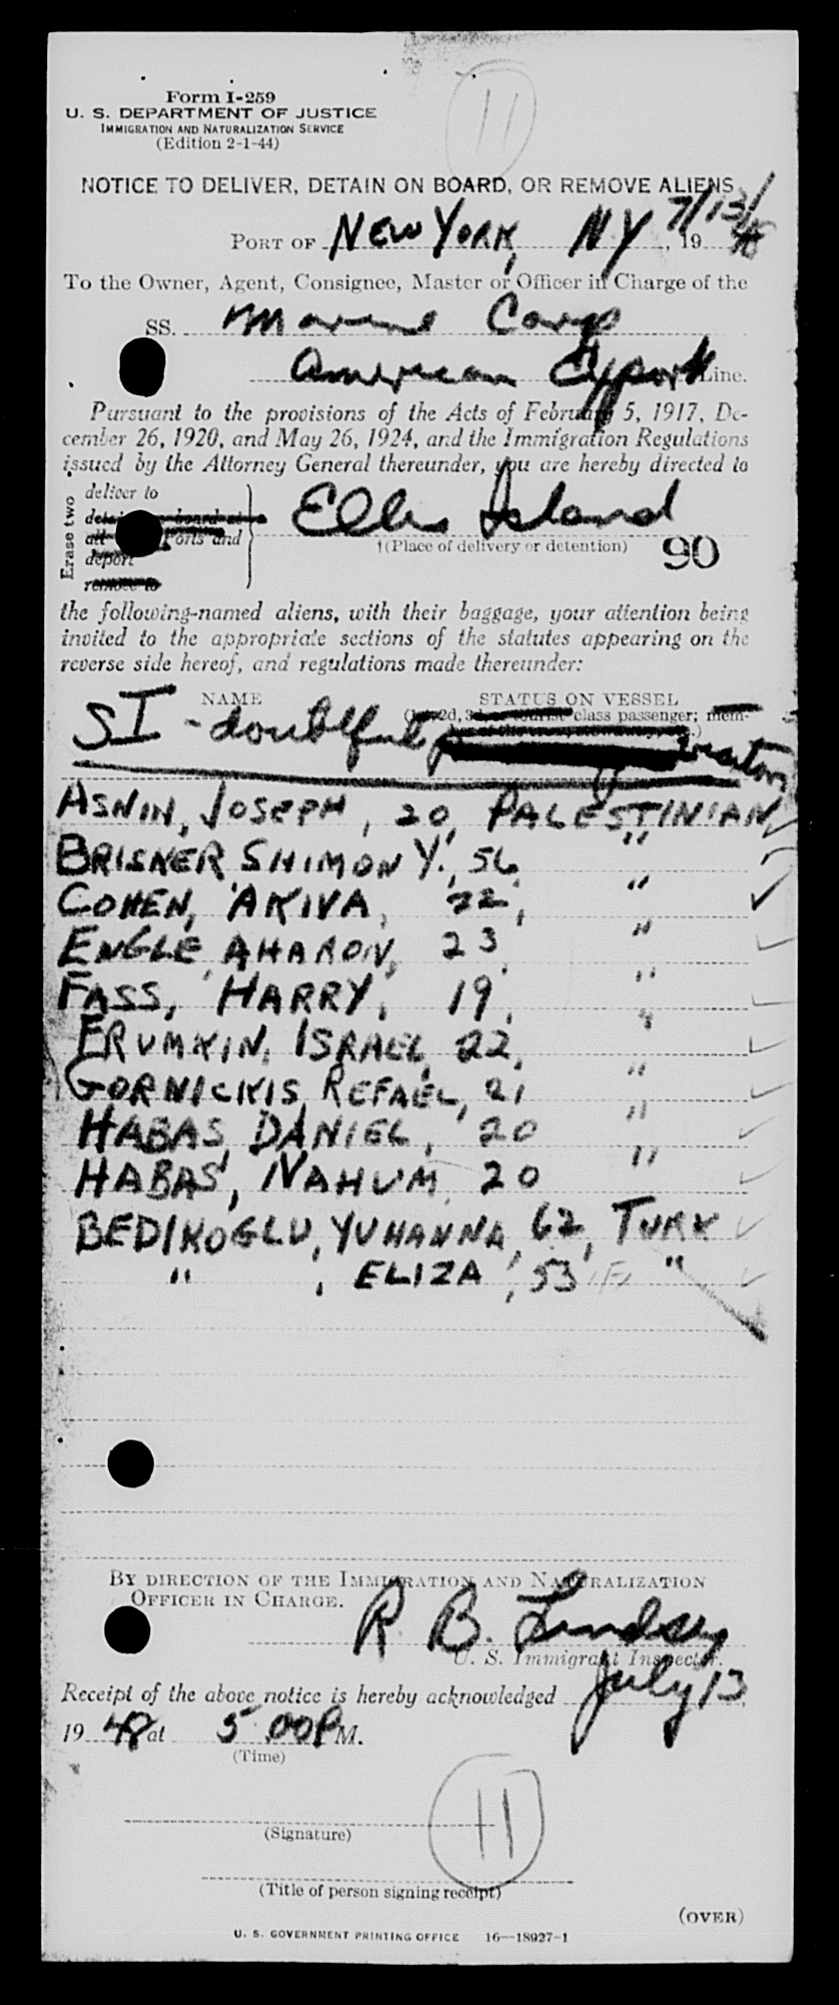 11
Form I-259
U. S. DEPARTMENT OF JUSTICE
IMMIGRATION AND NATURALIZATION SERVICE
(Edition 2-1-44)
NOTICE TO DELIVER, DETAIN ON BOARD, OR REMOVE ALIENS
PORT OF NEW YORK, NY 7/13/, 1948
To the Owner, Agent, Consignee, Master or Officer in Charge of the
SS. Marine Carp
American Export Line.
Pursuant to the provisions of the Acts of February 5, 1917, De-
cember 26, 1920, and May 26, 1924, and the Immigration Regulations
issued by the Attorney General thereunder, you are hereby directed to
Erase two
deliver to
board at
all Ports and
deport
remove to
Ellis Island
†(Place of delivery or detention) 90
the following-named aliens, with their baggage, your attention being
invited to the appropriate sections of the statutes appearing on the
reverse side hereof, and regulations made thereunder:
NAME STATUS ON VESSEL
2d, 3d, or tourist class passenger; mem-
SI - doubtful
ASNIN, JOSEPH, 20, PALESTINIAN
BRISKER SHIMON Y., 56 "
COHEN, AKIVA, 22, "
ENGLE, AHARON, 23, "
FASS, HARRY, 19, "
FRUMKIN, ISRAEL, 22, "
GORNICKIS, REFAEL, 21 "
HABAS, DANIEL, 20 "
HABAS, NAHUM, 20 "
BEDIKOGLU, YUHANNA, 62, TURK
" , ELIZA, 53 F "
BY DIRECTION OF THE IMMIGRATION AND NATURALIZATION
OFFICER IN CHARGE.
R. B. Lindsey
U. S. Immigrant Inspector.
Receipt of the above notice is hereby acknowledged July 13,
1948 at 5:00 P M.
(Time)
11
(Signature)
(Title of person signing receipt)
(OVER)
U. S. GOVERNMENT PRINTING OFFICE 16—18927-1